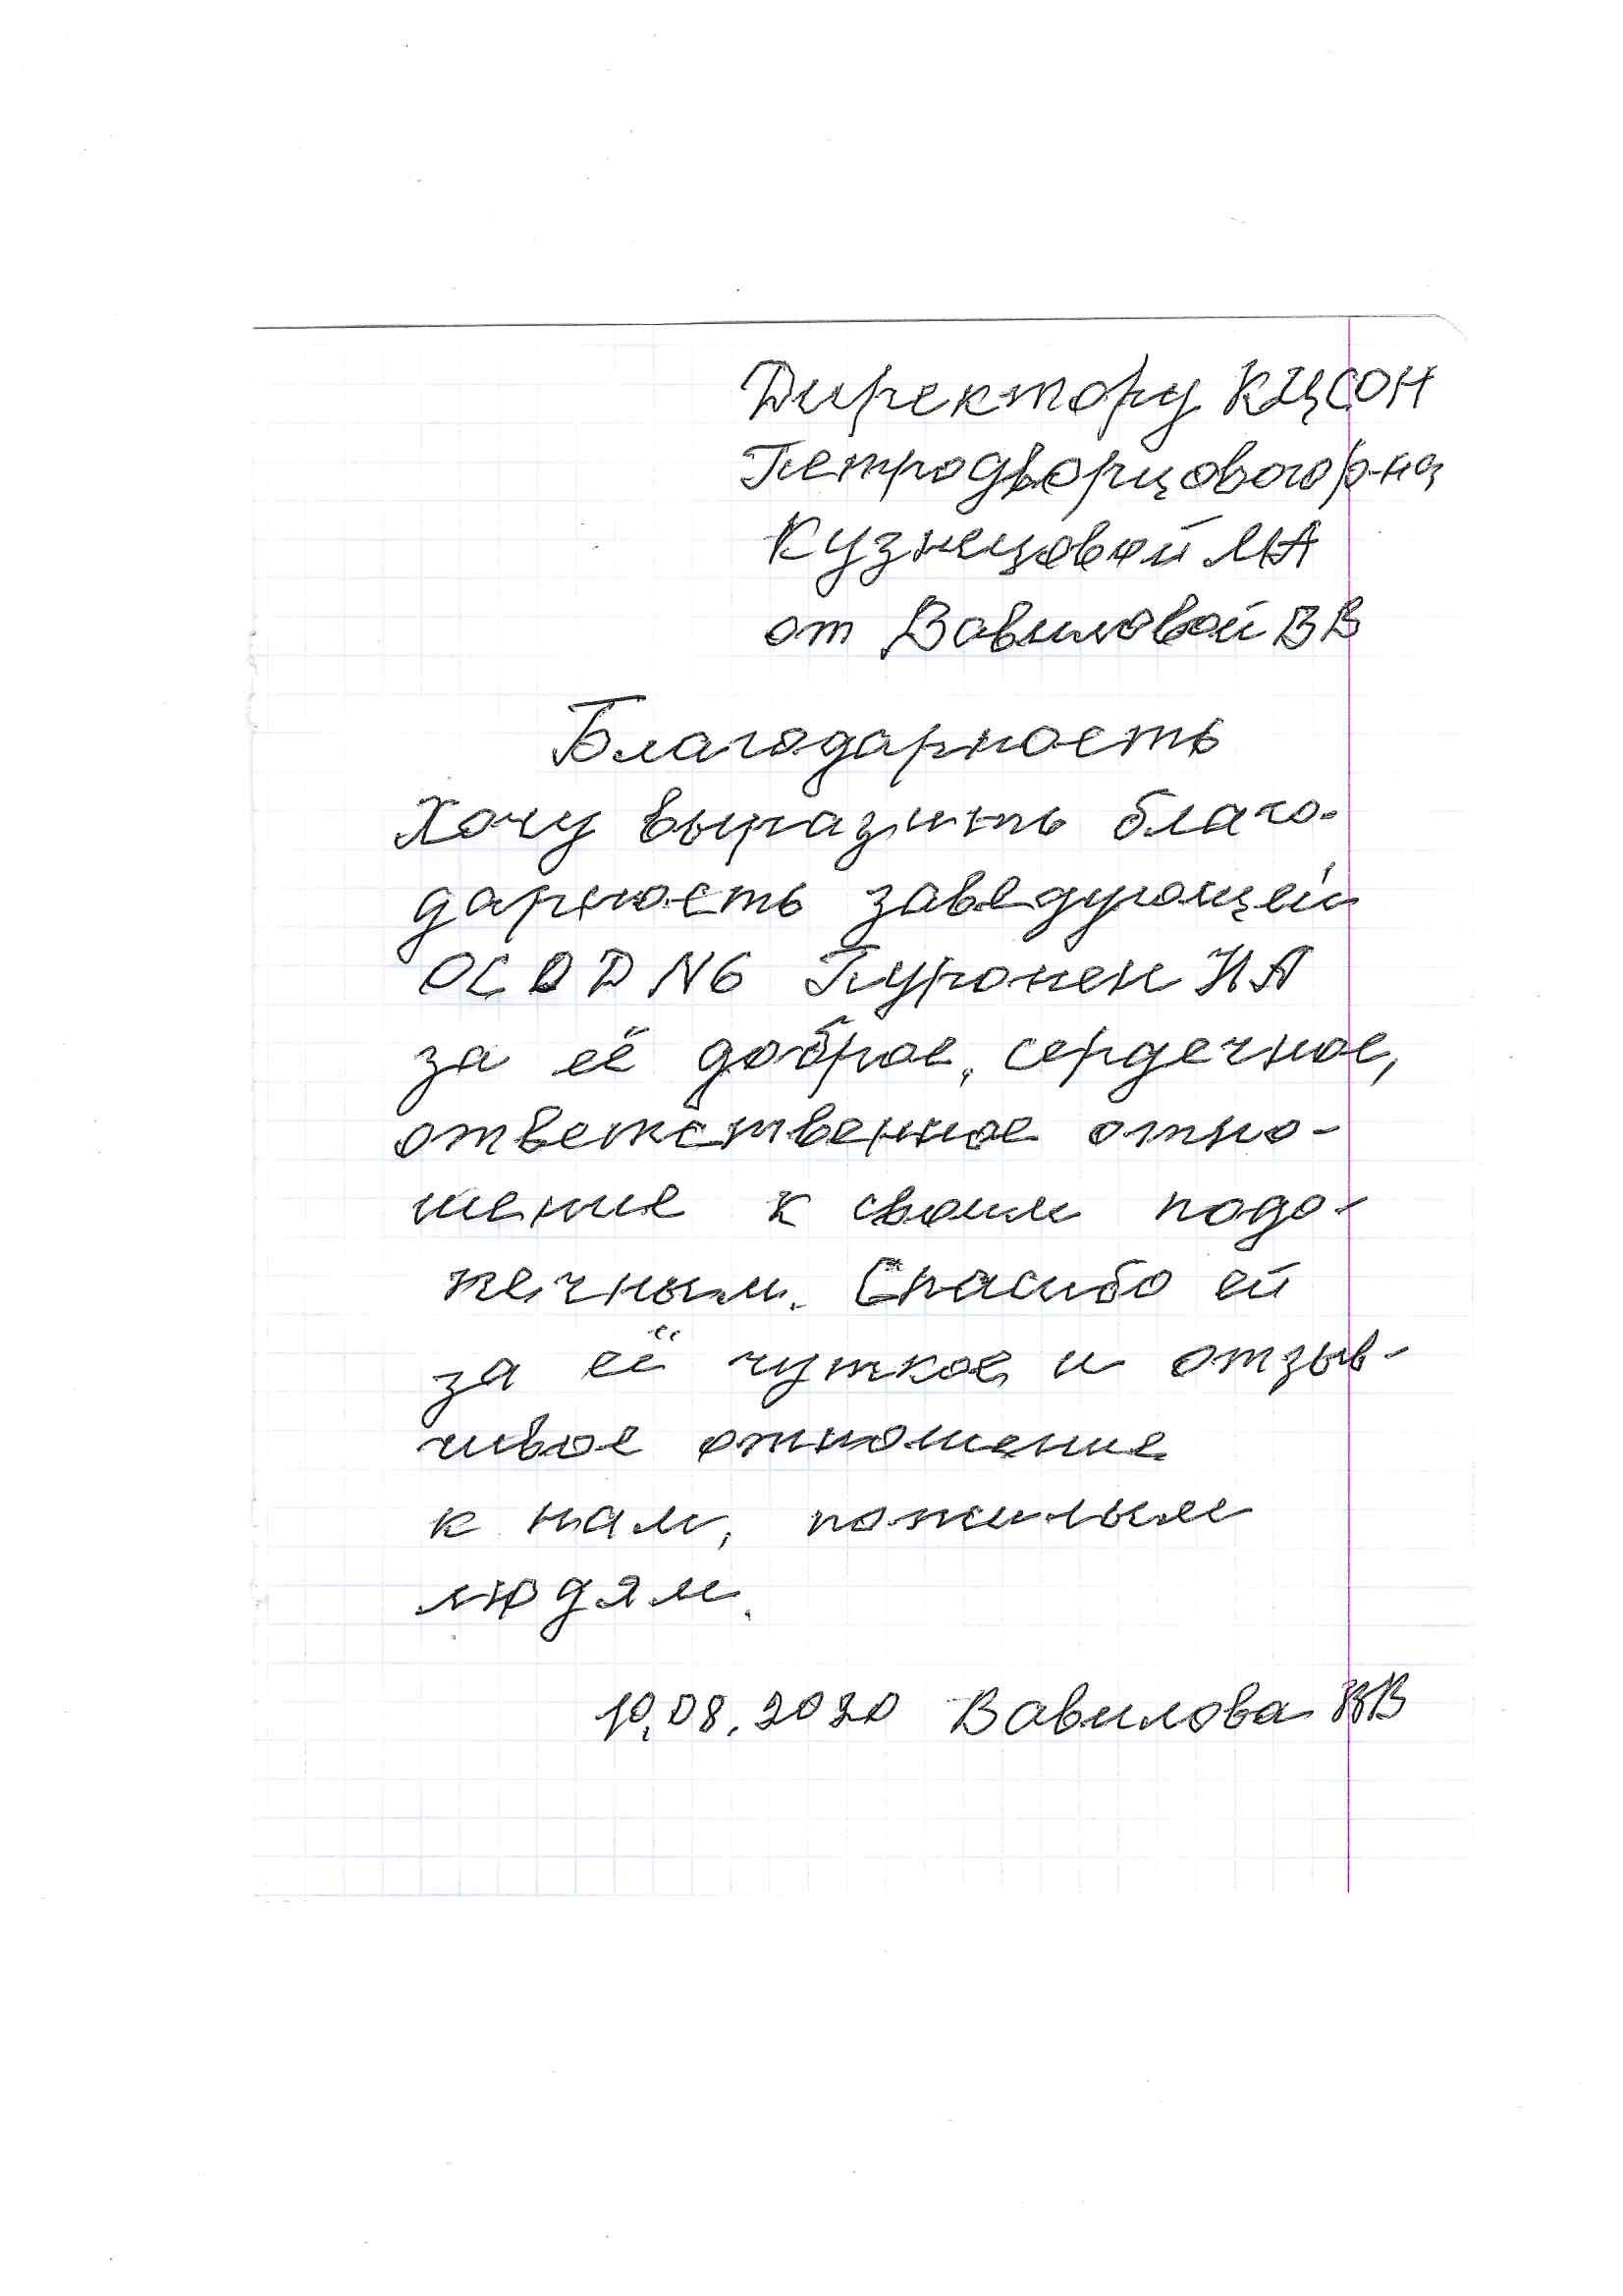 Директору КЦСОН
Петродворцового р-на
Кузнецовой МА
от Вавиловой ВВ
Благодарность
Хочу выразить благо-
дарность заведующей
ОСДД N6 Пуронен НА
за её доброе, сердечное,
ответственное отно-
шение к своим подо-
печным. Спасибо ей
за её чуткое и отзыв-
чивое отношение
к нам, пожилым
людям.
10.08.2020 Вавилова ВВ